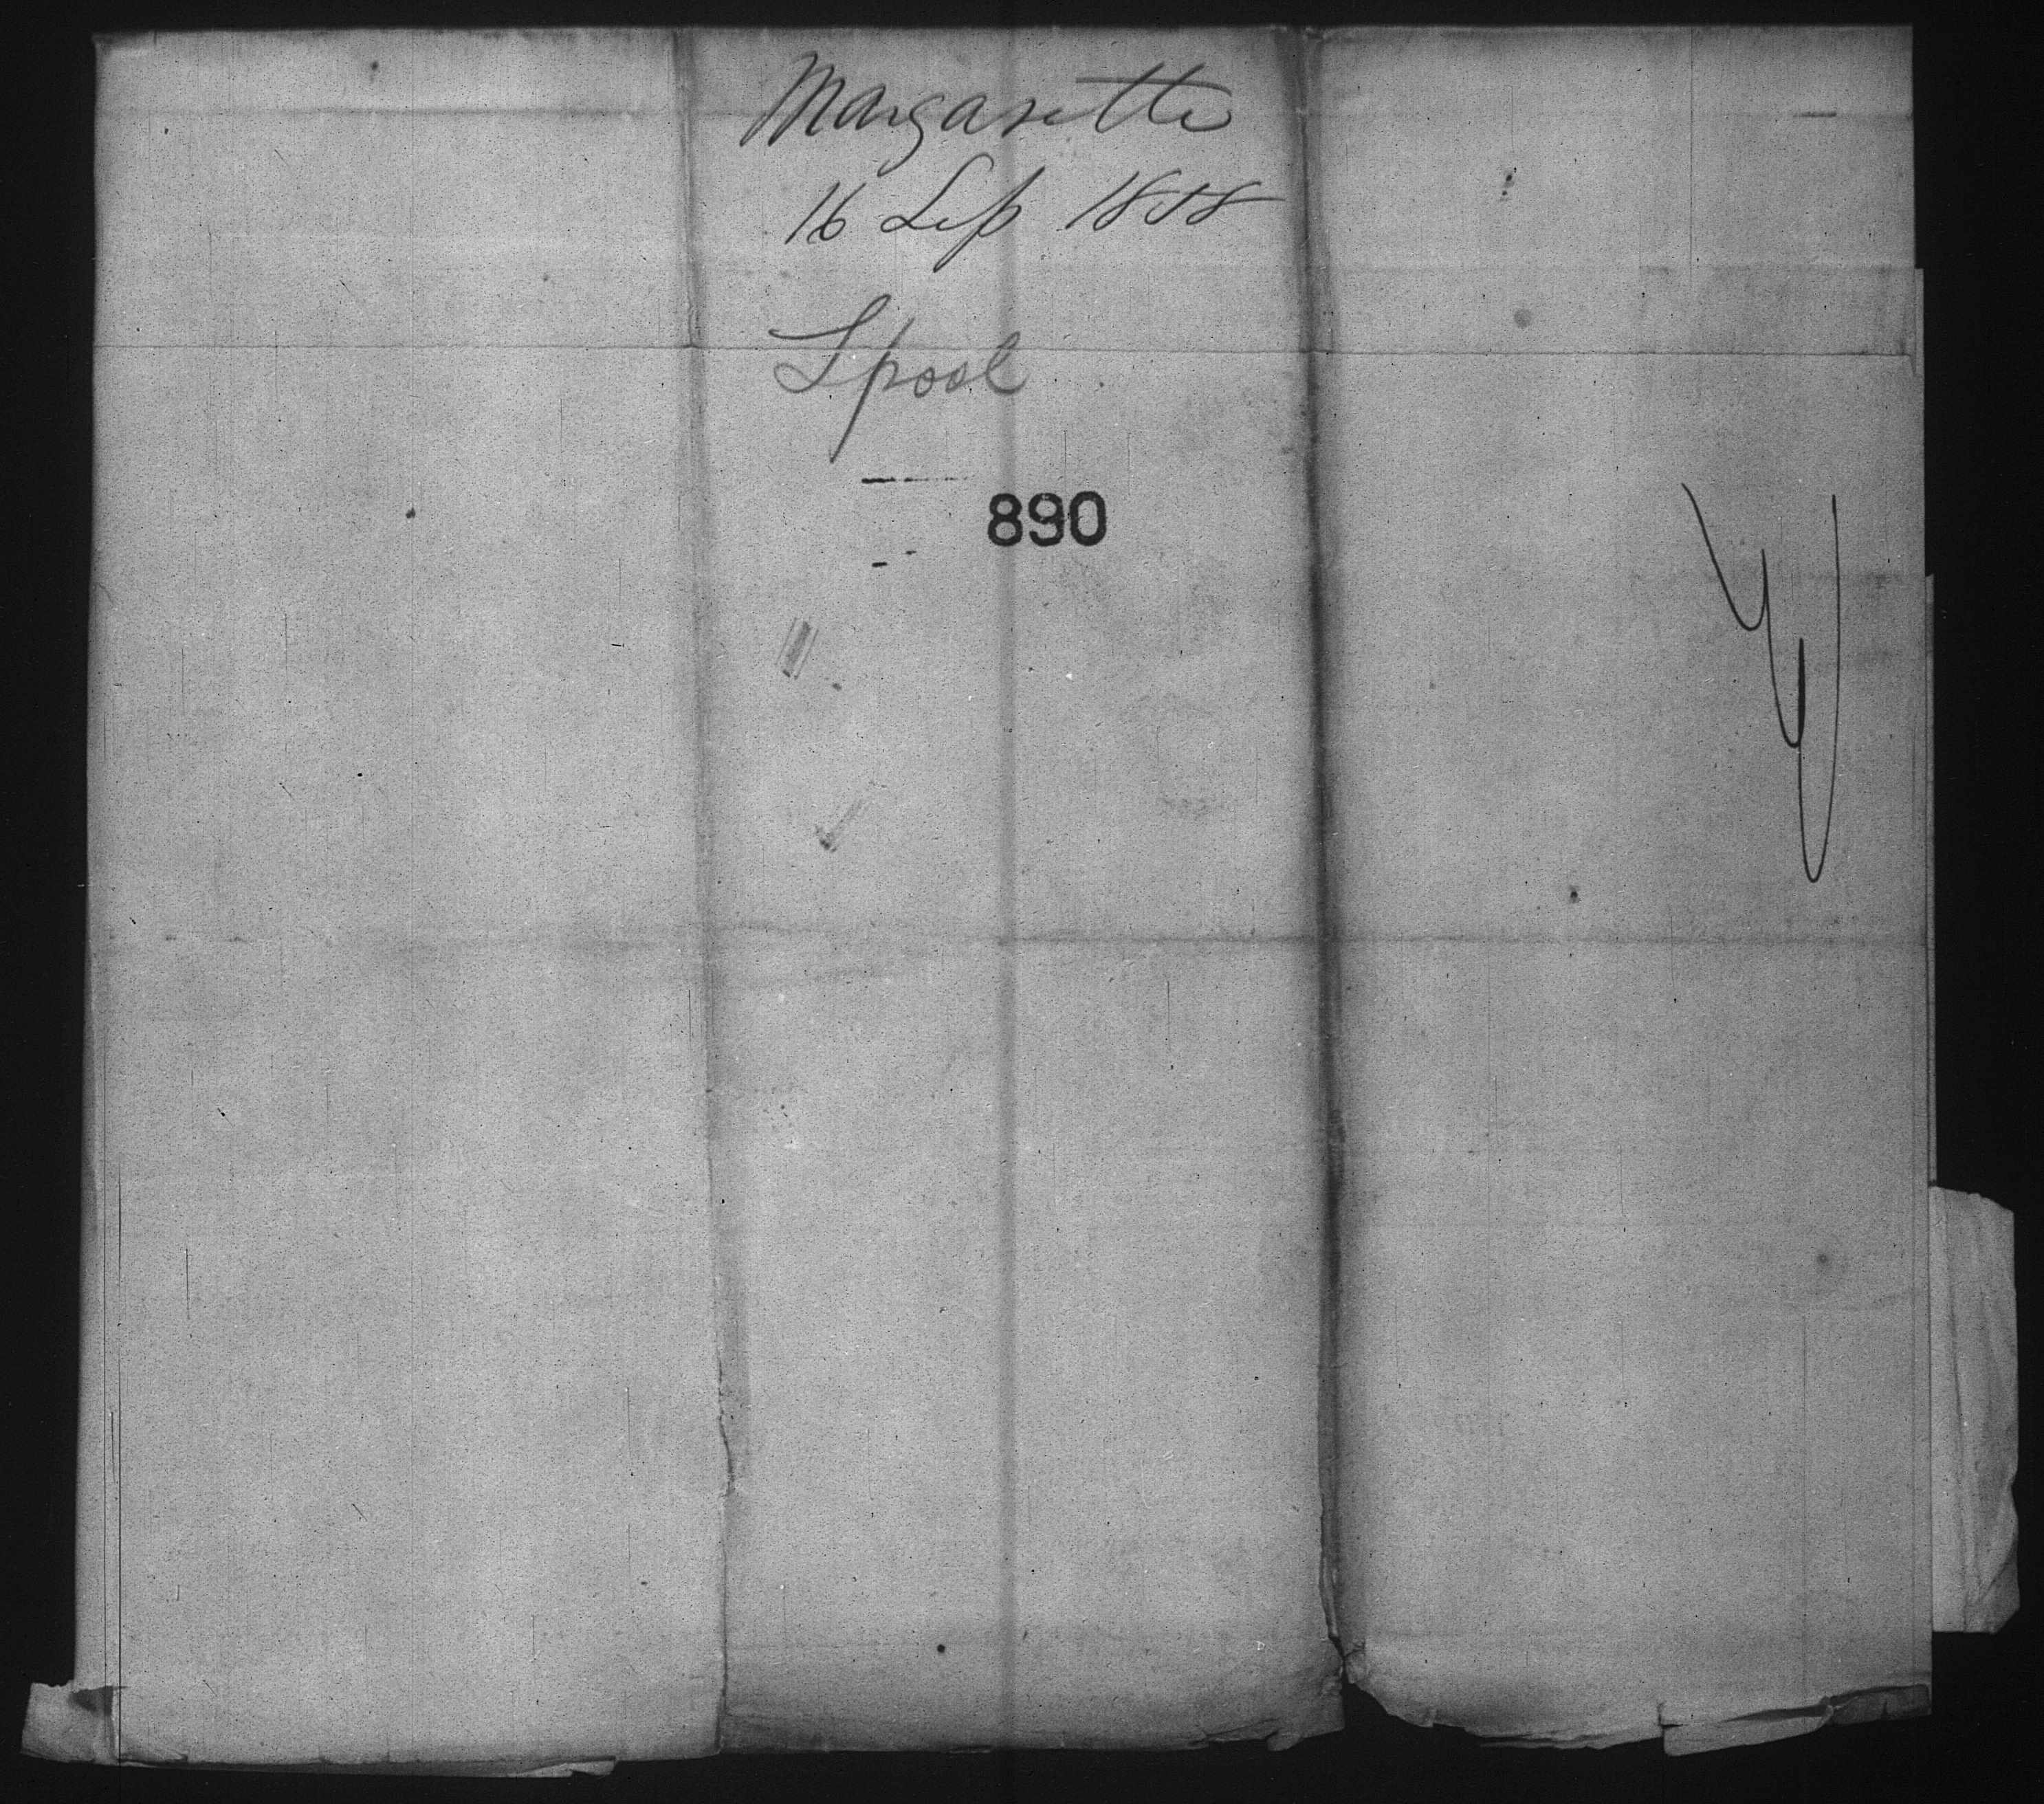 Margarette
16 Sep 1858
Lpool
890